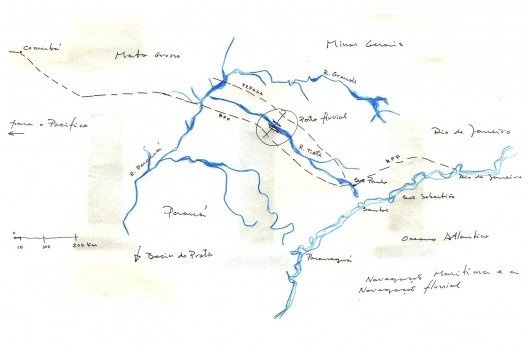 Corumbá
Mato Grosso
Minas Gerais
R. Grande
FEPASA
para o Pacífico
RFF
Porto fluvial
Rio de Janeiro
R. Tietê
R. Paraná
RFF
São Paulo
Rio de Janeiro
São Sebastião
Santos
Paraná
Oceano Atlântico
100
200 Km
Bacia do Prata
Paranaguá
Navegação Marítima e a
Navegação fluvial